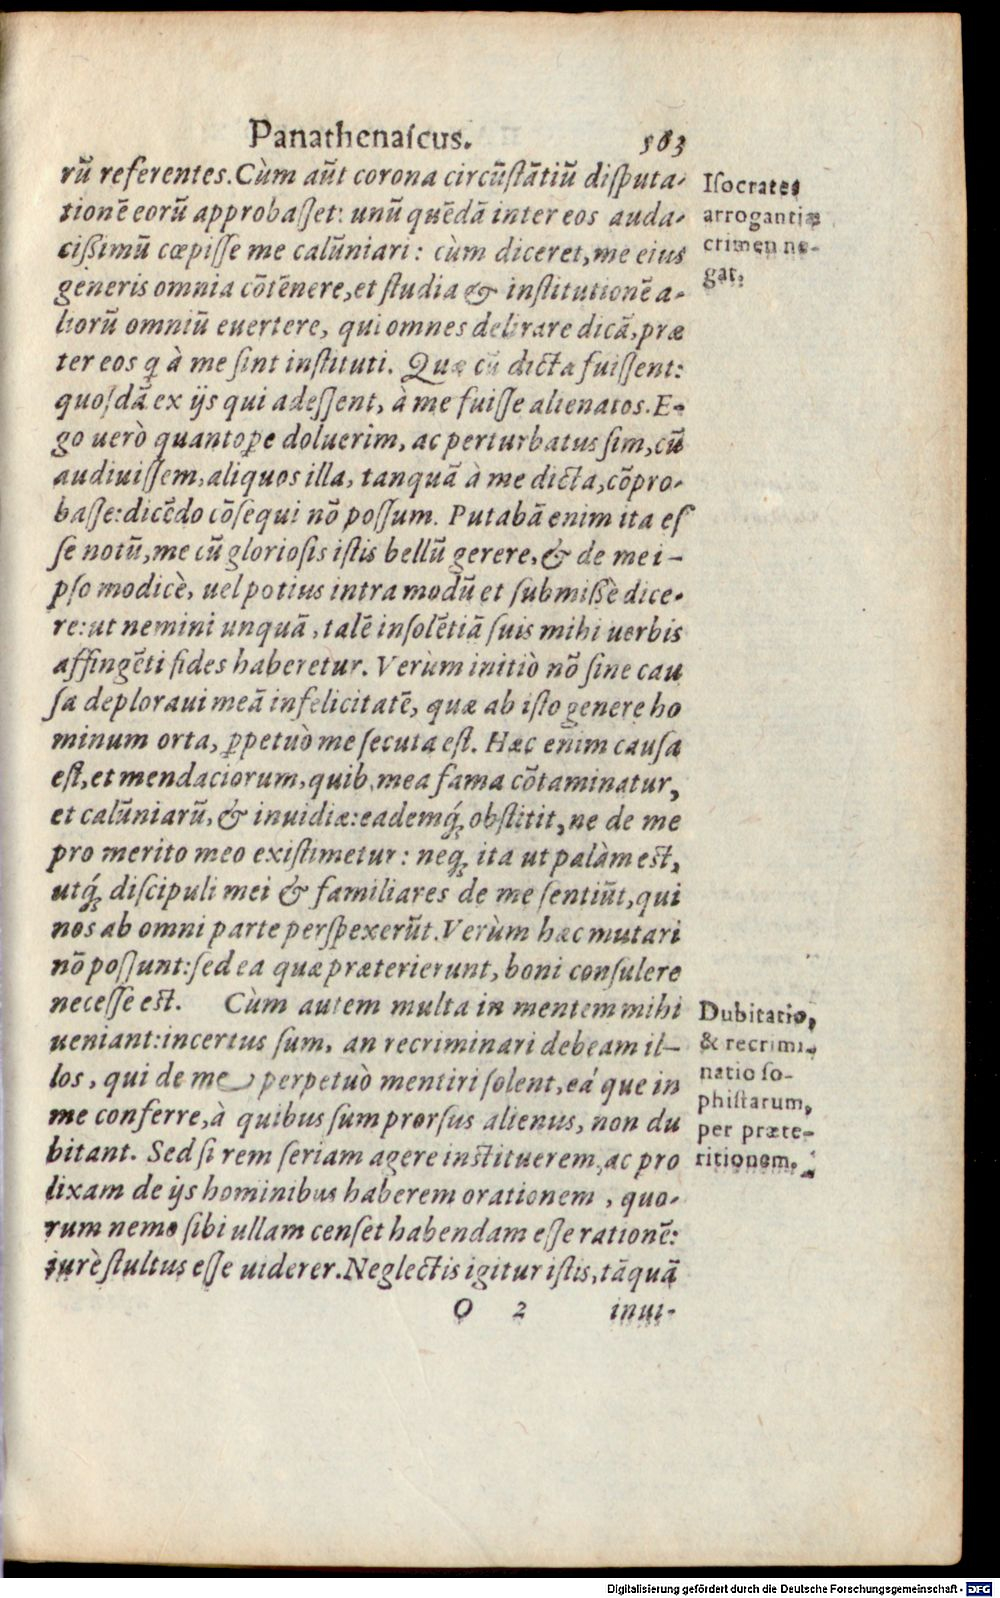 Panathenaicus. 583
rũ referentes. Cùm aũt corona circũſtãtiũ diſputa-
tionẽ eorũ approbaſſet: unũ quẽdã inter eos auda-
cißimũ cœpiſſe me calũniari: cùm diceret, me eius
generis omnia cõtẽnere, et ſtudia & inſtitutionẽ a-
liorũ omniũ euertere, qui omnes delirare dicã, præ
ter eos q̃ à me ſint inſtituti. Quæ cũ dicta fuiſſent:
quoſdã ex ijs qui adeſſent, à me fuiſſe alienatos. E-
go uerò quantop̲e doluerim, ac perturbatus ſim, cũ
audiuiſſem, aliquos illa, tanquã à me dicta, cõpro-
baſſe: dicẽdo cõſequi nõ poſſum. Putabã enim ita eſ
ſe notũ, me cũ glorioſis iſtis bellũ gerere, & de me i-
pſo modicè, uel potius intra modũ et ſubmiſſè dice-
re: ut nemini unquã, talẽ inſolẽtiã ſuis mihi uerbis
affingẽti fides haberetur. Verùm initiò nõ ſine cau
ſa deploraui meã infelicitatẽ, quæ ab iſto genere ho
minum orta, p̲petuò me ſecuta eſt. Hæc enim cauſa
eſt, et mendaciorum, quib. mea fama cõtaminatur,
et calũniarũ, & inuidiæ: eademq́ꝫ obſtitit, ne de me
pro merito meo exiſtimetur: neqꝫ ita ut palàm eſt,
utq́ꝫ diſcipuli mei & familiares de me ſentiũt, qui
nos ab omni parte perſpexerũt. Verùm hæc mutari
nõ poſſunt: ſed ea quæ præterierunt, boni conſulere
neceſſe eſt. Cùm autem multa in mentem mihi
ueniant: incertus ſum, an recriminari debeam il-
los, qui de me perpetuò mentiri ſolent, eá que in
me conferre, à quibus ſum prorſus alienus, non du
bitant. Sed ſi rem ſeriam agere inſtituerem, ac pro
lixam de ijs hominibus haberem orationem, quo-
rum nemo ſibi ullam cenſet habendam eſſe rationẽ:
iurè ſtultus eſſe uiderer. Neglectis igitur iſtis, tãquã
O 2 inui-
Iſocrates
arrogantiæ
crimen ne-
gat.
Dubitatio,
& recrimi-
natio ſo-
phiſtarum,
per præte-
ritionem.
Digitalisierung gefördert durch die Deutsche Forschungsgemeinschaft - DFG